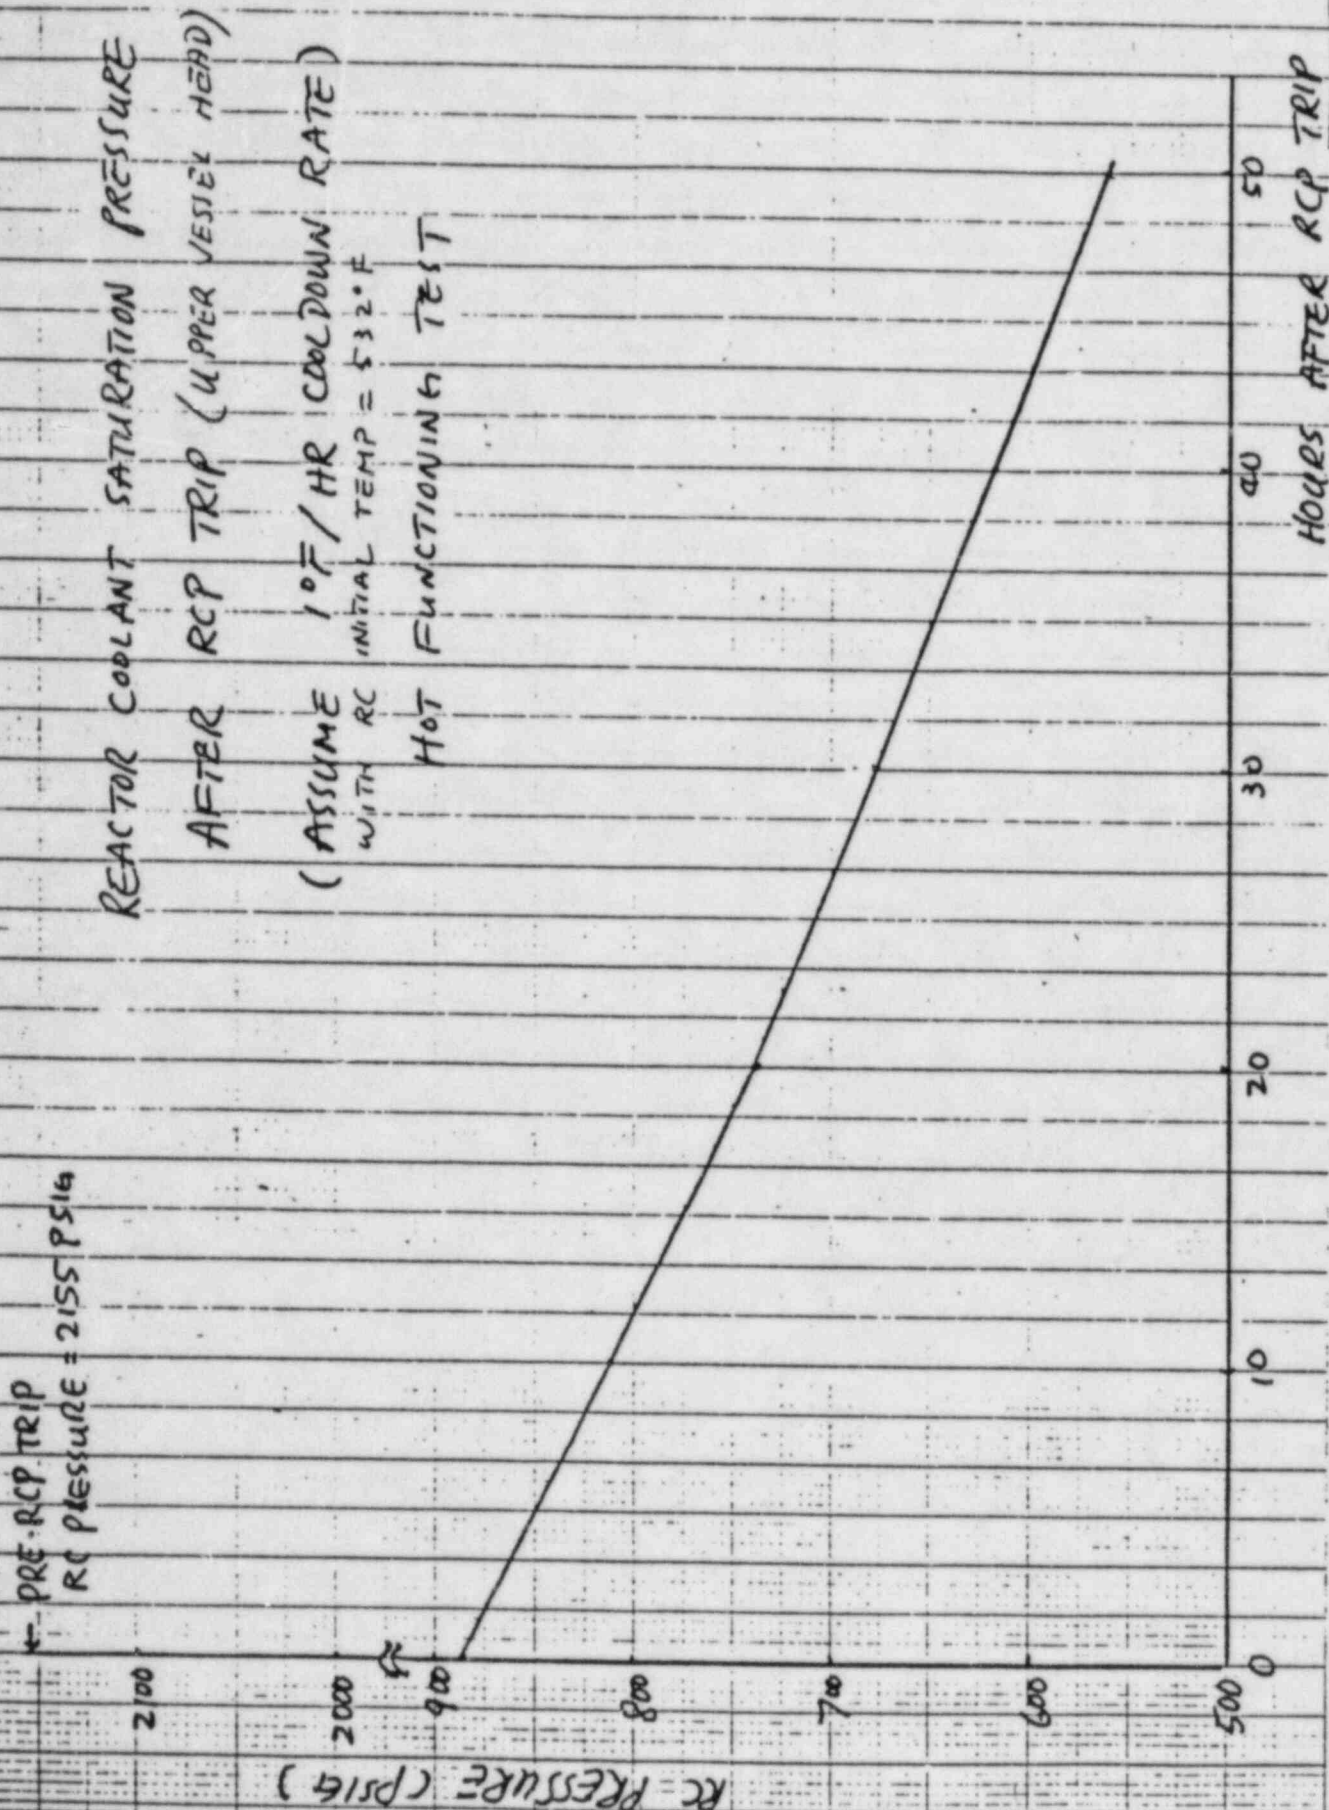 ← PRE-RCP TRIP
RC PRESSURE = 2155 PSIG
REACTOR COOLANT SATURATION PRESSURE
AFTER RCP TRIP (UPPER VESSEL HEAD)
(ASSUME 1°F/HR COOLDOWN RATE)
WITH RC INITIAL TEMP = 532°F
HOT FUNCTIONING TEST
RC PRESSURE (PSIG)
2100
2000
900
800
700
600
500
0 10 20 30 40 50
HOURS AFTER RCP TRIP